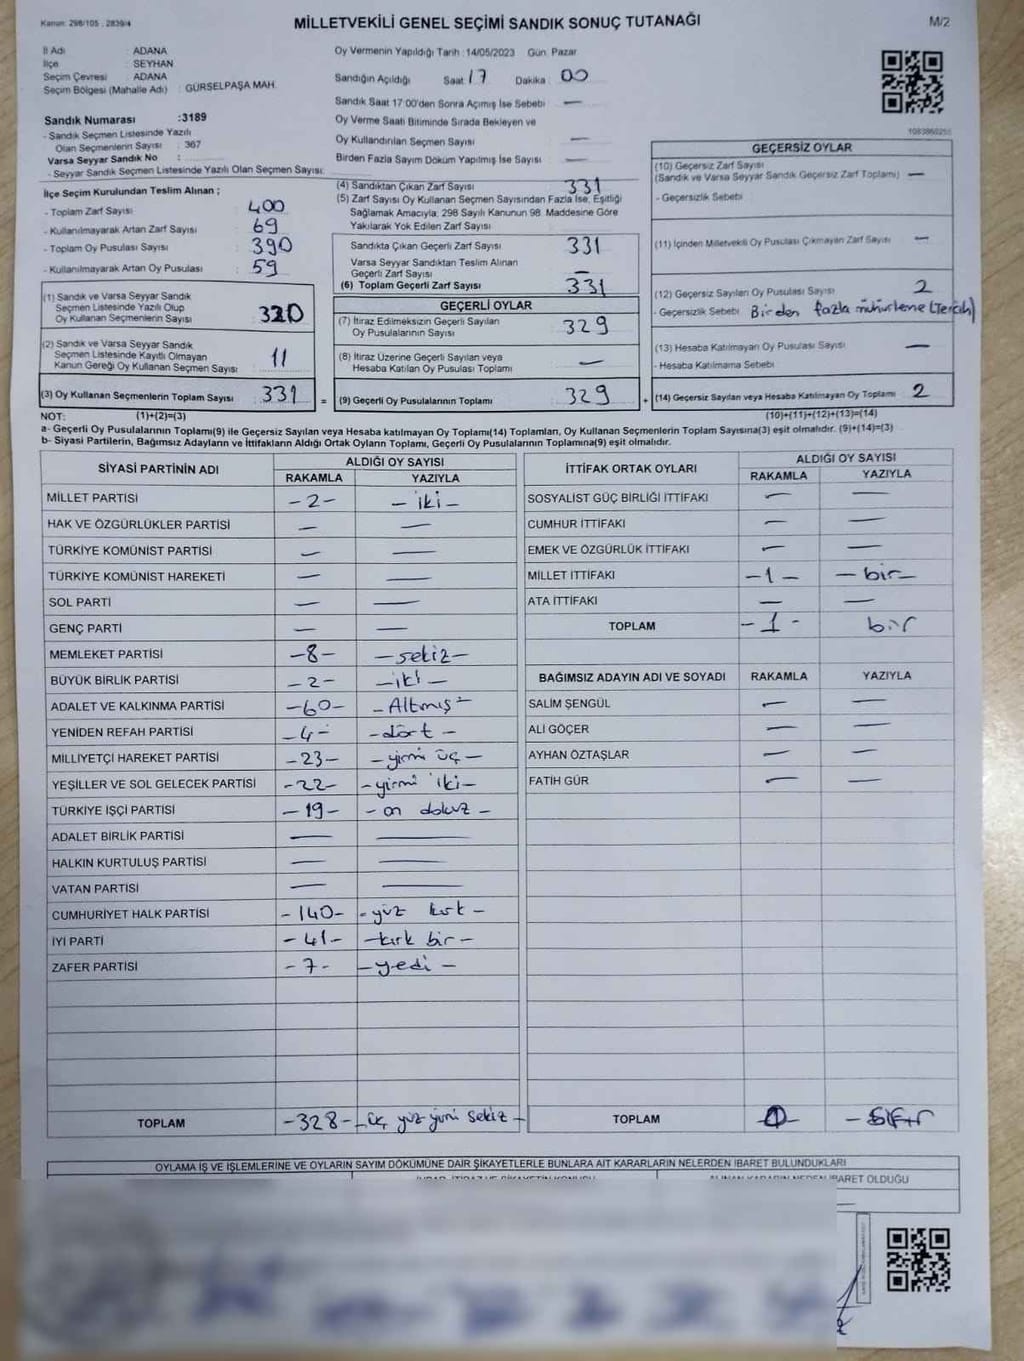 Kanun: 298/105 , 2839/4
MİLLETVEKİLİ GENEL SEÇİMİ SANDIK SONUÇ TUTANAĞI
M/2
İl Adı : ADANA
İlçe : SEYHAN
Seçim Çevresi : ADANA
Seçim Bölgesi (Mahalle Adı) : GÜRSELPAŞA MAH.
Sandık Numarası :3189
- Sandık Seçmen Listesinde Yazılı
Olan Seçmenlerin Sayısı : 367
Varsa Seyyar Sandık No :
- Seyyar Sandık Seçmen Listesinde Yazılı Olan Seçmen Sayısı:
Oy Vermenin Yapıldığı Tarih :14/05/2023 Gün: Pazar
Sandığın Açıldığı Saat 17 Dakika : 00
Sandık Saat 17:00'den Sonra Açımış İse Sebebi : —
Oy Verme Saati Bitiminde Sırada Bekleyen ve
Oy Kullandırılan Seçmen Sayısı : —
Birden Fazla Sayım Döküm Yapılmış İse Sayısı : —
1083860255
İlçe Seçim Kurulundan Teslim Alınan ;
- Toplam Zarf Sayısı : 400
- Kullanılmayarak Artan Zarf Sayısı : 69
- Toplam Oy Pusulası Sayısı : 390
- Kullanılmayarak Artan Oy Pusulası : 59
(1) Sandık ve Varsa Seyyar Sandık
Seçmen Listesinde Yazılı Olup
Oy Kullanan Seçmenlerin Sayısı : 320
(2) Sandık ve Varsa Seyyar Sandık
Seçmen Listesinde Kayıtlı Olmayan
Kanun Gereği Oy Kullanan Seçmen Sayısı : 11
(3) Oy Kullanan Seçmenlerin Toplam Sayısı : 331 =
(4) Sandıktan Çıkan Zarf Sayısı : 331
(5) Zarf Sayısı Oy Kullanan Seçmen Sayısından Fazla İse, Eşitliği
Sağlamak Amacıyla, 298 Sayılı Kanunun 98. Maddesine Göre
Yakılarak Yok Edilen Zarf Sayısı :
Sandıkta Çıkan Geçerli Zarf Sayısı : 331
Varsa Seyyar Sandıktan Teslim Alınan
Geçerli Zarf Sayısı : —
(6) Toplam Geçerli Zarf Sayısı : 331
GEÇERLİ OYLAR
(7) İtiraz Edilmeksizin Geçerli Sayılan
Oy Pusulalarının Sayısı : 329
(8) İtiraz Üzerine Geçerli Sayılan veya
Hesaba Katılan Oy Pusulası Toplamı : —
(9) Geçerli Oy Pusulalarının Toplamı : 329 +
GEÇERSİZ OYLAR
(10) Geçersiz Zarf Sayısı
(Sandık ve Varsa Seyyar Sandık Geçersiz Zarf Toplamı) : —
- Geçersizlik Sebebi :
(11) İçinden Milletvekili Oy Pusulası Çıkmayan Zarf Sayısı : —
(12) Geçersiz Sayılan Oy Pusulası Sayısı : 2
- Geçersizlik Sebebi : Birden fazla mühürleme (Tercih)
(13) Hesaba Katılmayan Oy Pusulası Sayısı : —
- Hesaba Katılmama Sebebi :
(14) Geçersiz Sayılan veya Hesaba Katılmayan Oy Toplamı : 2
NOT: (1)+(2)=(3)
(10)+(11)+(12)+(13)=(14)
a- Geçerli Oy Pusulalarının Toplamı(9) ile Geçersiz Sayılan veya Hesaba katılmayan Oy Toplamı(14) Toplamları, Oy Kullanan Seçmenlerin Toplam Sayısına(3) eşit olmalıdır. (9)+(14)=(3)
b- Siyasi Partilerin, Bağımsız Adayların ve İttifakların Aldığı Ortak Oyların Toplamı, Geçerli Oy Pusulalarının Toplamına(9) eşit olmalıdır.
SİYASİ PARTİNİN ADI ALDIĞI OY SAYISI
RAKAMLA YAZIYLA
MİLLET PARTİSİ -2- - iki -
HAK VE ÖZGÜRLÜKLER PARTİSİ — —
TÜRKİYE KOMÜNİST PARTİSİ — —
TÜRKİYE KOMÜNİST HAREKETİ — —
SOL PARTİ — —
GENÇ PARTİ — —
MEMLEKET PARTİSİ -8- -sekiz-
BÜYÜK BİRLİK PARTİSİ -2- -iki-
ADALET VE KALKINMA PARTİSİ -60- -Altmış-
YENİDEN REFAH PARTİSİ -4- -dört-
MİLLİYETÇİ HAREKET PARTİSİ -23- -yirmi üç-
YEŞİLLER VE SOL GELECEK PARTİSİ -22- -yirmi iki-
TÜRKİYE İŞÇİ PARTİSİ -19- -on dokuz-
ADALET BİRLİK PARTİSİ — —
HALKIN KURTULUŞ PARTİSİ — —
VATAN PARTİSİ — —
CUMHURİYET HALK PARTİSİ -140- -yüz kırk-
İYİ PARTİ -41- -kırk bir-
ZAFER PARTİSİ -7- -yedi-
TOPLAM -328- -üç yüz yirmi sekiz-
İTTİFAK ORTAK OYLARI ALDIĞI OY SAYISI
RAKAMLA YAZIYLA
SOSYALİST GÜÇ BİRLİĞİ İTTİFAKI — —
CUMHUR İTTİFAKI — —
EMEK VE ÖZGÜRLÜK İTTİFAKI — —
MİLLET İTTİFAKI -1- -bir-
ATA İTTİFAKI — —
TOPLAM -1- bir
BAĞIMSIZ ADAYIN ADI VE SOYADI RAKAMLA YAZIYLA
SALİM ŞENGÜL — —
ALİ GÖÇER — —
AYHAN ÖZTAŞLAR — —
FATİH GÜR — —
TOPLAM -0- -sıfır
OYLAMA İŞ VE İŞLEMLERİNE VE OYLARIN SAYIM DÖKÜMÜNE DAİR ŞİKAYETLERLE BUNLARA AİT KARARLARIN NELERDEN İBARET BULUNDUKLARI
İBARET OLDUĞU